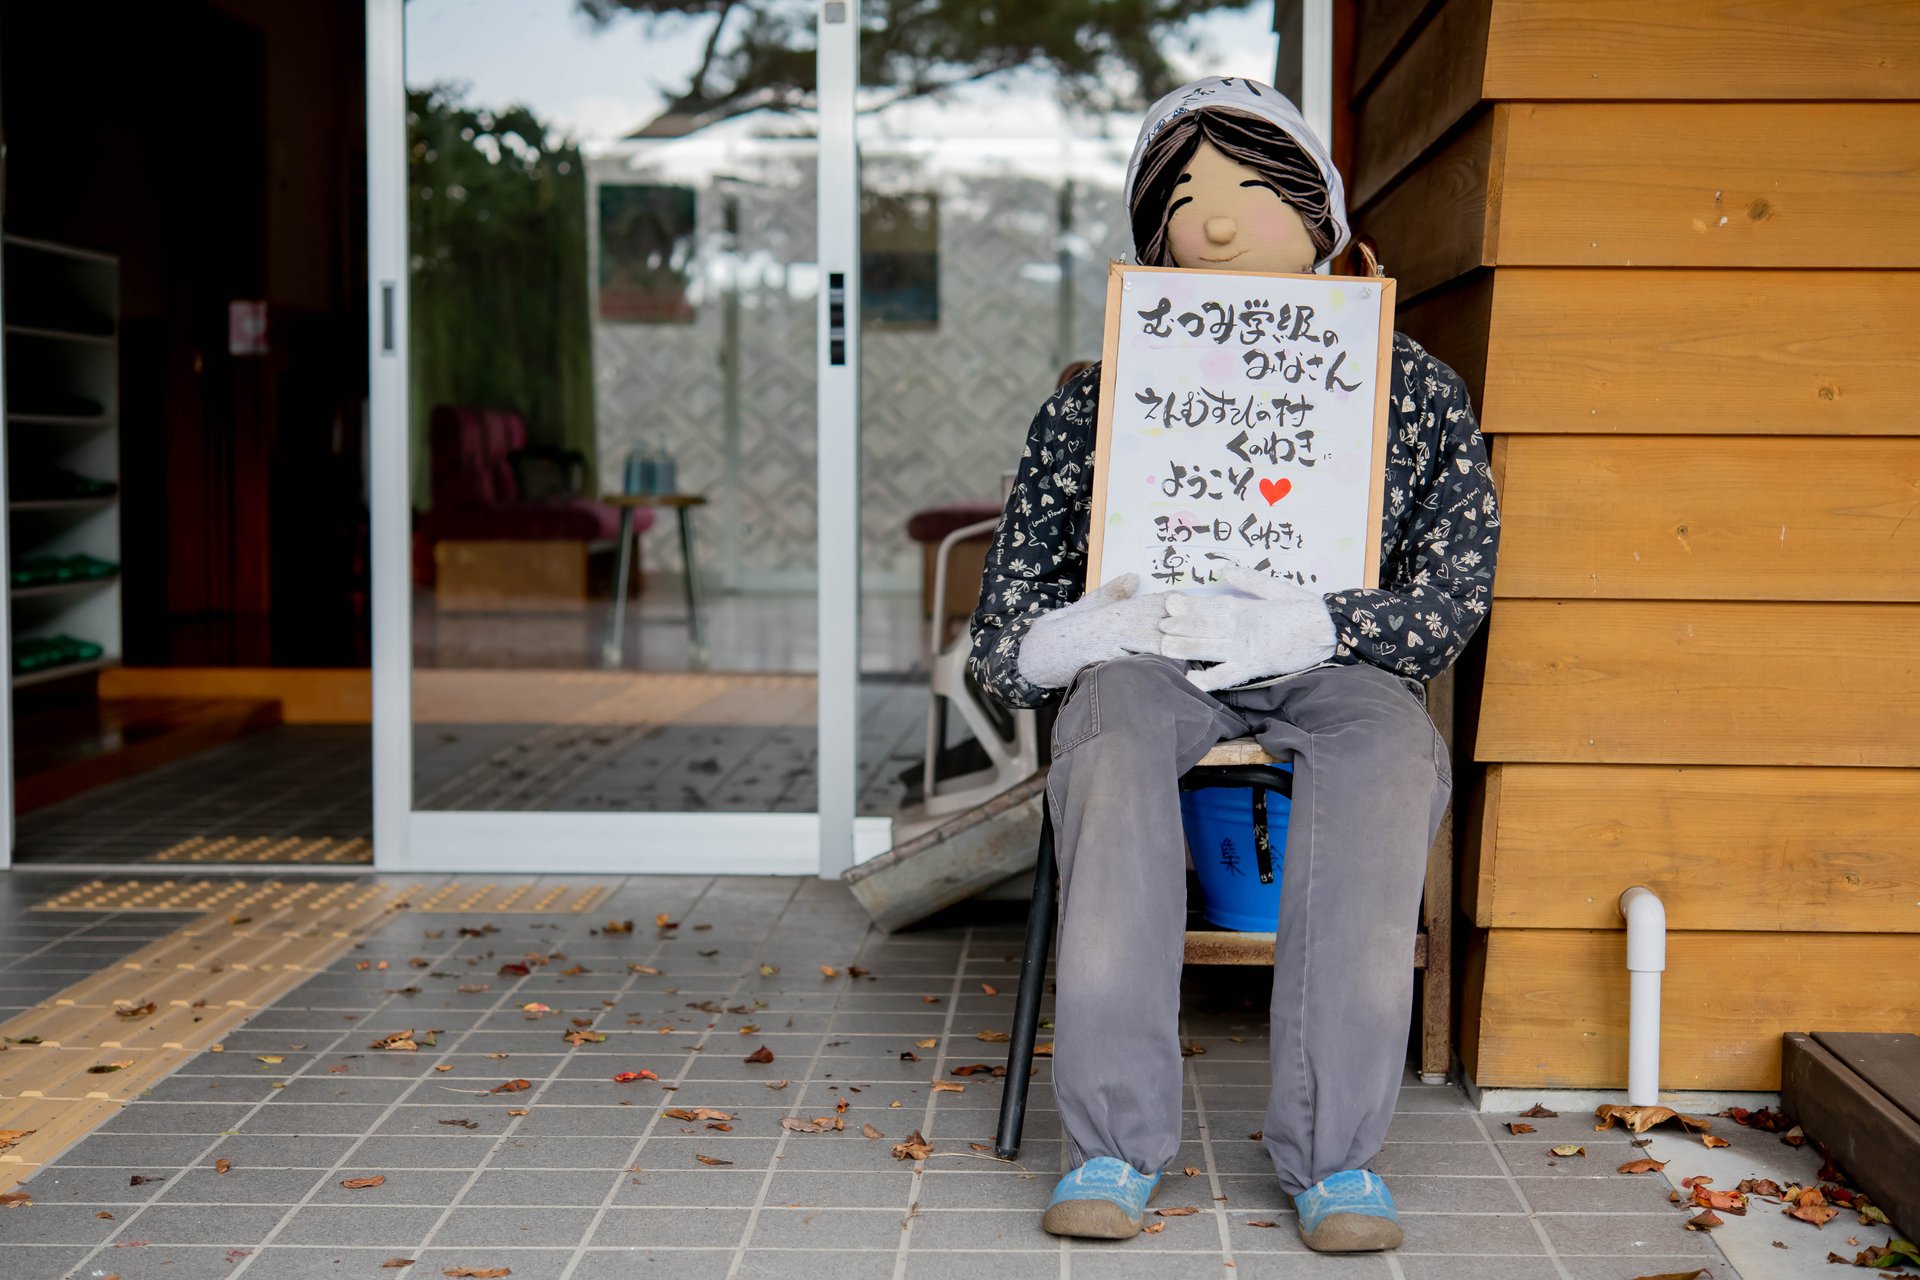 むつみ学級の
みなさん
えんむすびの村
くのわきに
ようこそ
きょう一日くのわきを
楽しんでください
Lovely Flower
集